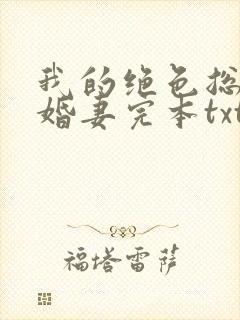 我的绝色总
婚妻完本txt
福塔雷萨